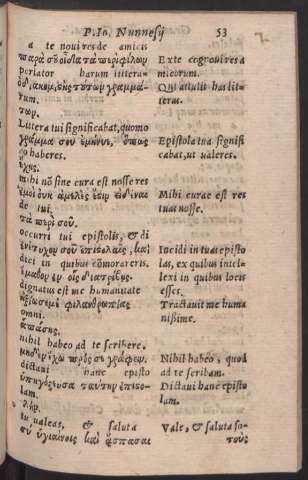 P. Io. Nunnesij 53
a te noui res de amicis
παρὰ σοῦ οἶδα τὰ περὶ φίλων Ex te cognoui res a
perlator harum littera- micorum.
ὁ διακομίσας τούτων γραμμά- Qui attulit has lit-
rum. teras.
των.
Littera tui significabat, quomo
γράμμα σου ἐμήνυε, ὅπως Epistola tua signifi
do haberes. cabat, ut valeres.
ἔχῃς.
mihi nō sine cura est nosse res
ἐμοὶ οὐκ ἀμελὲς ἐστὶν εἰδέναι Mihi curae est res
de tui. tuas nosse.
τὰ περὶ σοῦ.
occurri tui epistolis, & di
ἐνέτυχον σοῦ ἐπιστολαῖς, καὶ Incidi in tuas episto
dici in quibus cōmorareris. las, ex quibus intel-
ἔμαθον ἐν οἷς διατρίβεις. lexi in quibus locis
dignatus est me humanitate esses.
ἠξίωσέ με φιλανθρωπίας Tractauit me huma
omni. nißime.
ἁπάσης.
nihil habeo ad te scribere.
μηδὲν ἔχω πρὸς σε γράφειν. Nihil habeo, quod
dictaui hanc episto ad te scribam.
ὑπηγόρευσα ταύτην ἐπιστο- Dictaui hanc episto
lam. lam.
λήν.
tu ualeas, & saluta Vale, & saluta so-
σὺ ὑγιαίνοις καὶ ἄσπασαι τοὺς